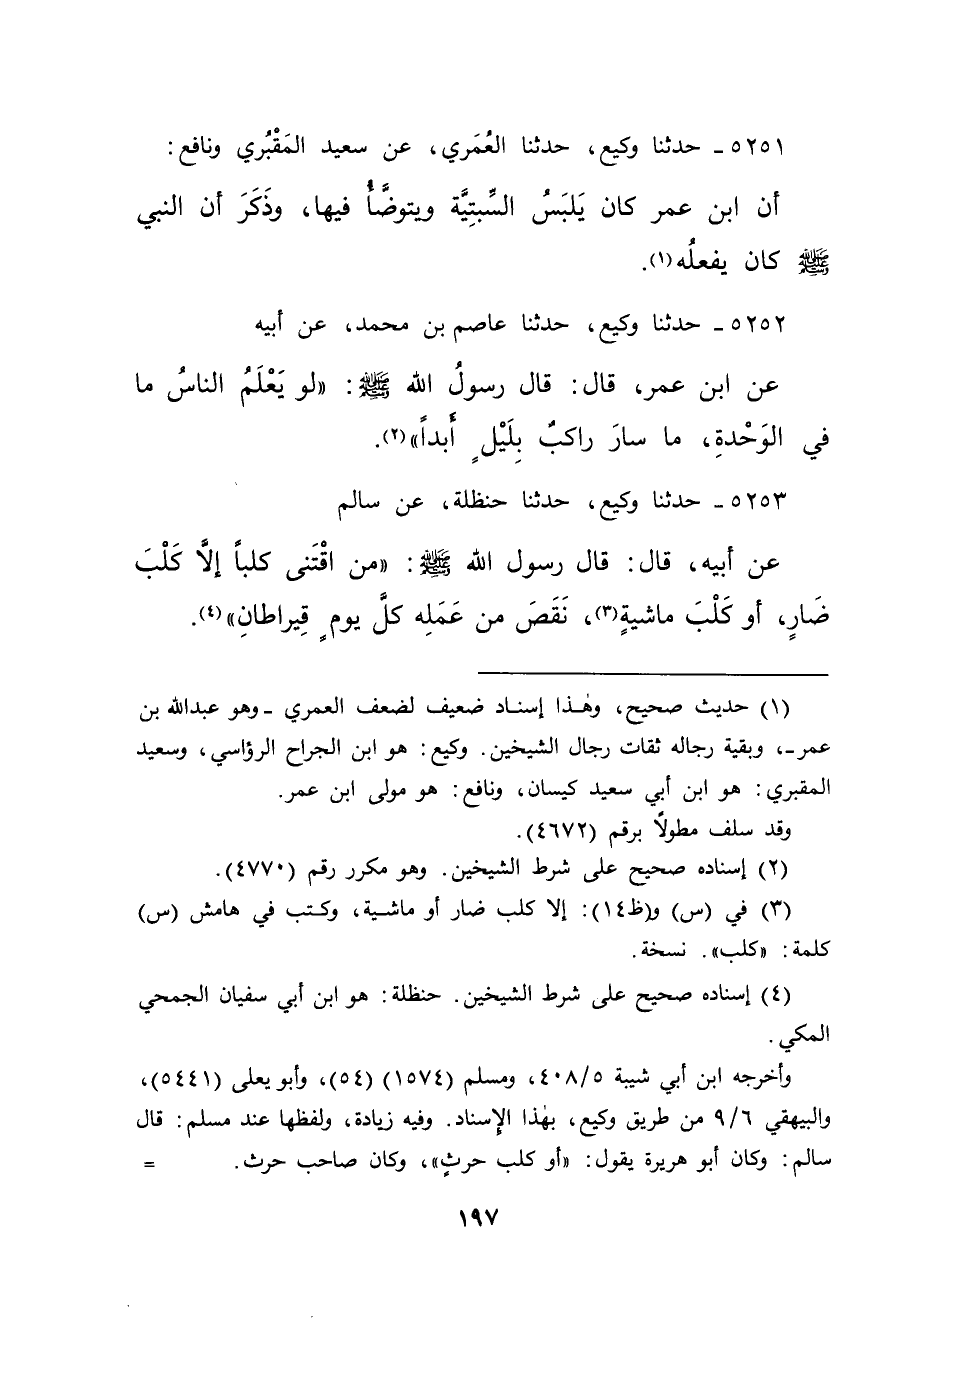 ٥٢٥١ ـ حدثنا وكيع، حدثنا العُمَري، عن سعيد المَقْبُري ونافع:
أن ابن عمر كان يَلبَسُ السِّبتِيَّة ويتوضَّأُ فيها، وذَكَرَ أن النبي
ﷺ كان يفعلُه(١).
٥٢٥٢ ـ حدثنا وكيع، حدثنا عاصم بن محمد، عن أبيه
عن ابن عمر، قال: قال رسولُ الله ﷺ: «لو يَعْلَمُ الناسُ ما
في الوَحْدةِ، ما سارَ راكبٌ بِلَيْلٍ أَبداً»(٢).
٥٢٥٣ ـ حدثنا وكيع، حدثنا حنظلة، عن سالم
عن أبيه، قال: قال رسول الله ﷺ: «من اقْتَنى كلباً إلَّا كَلْبَ
ضَارٍ، أو كَلْبَ ماشيةٍ(٣)، نَقَصَ من عَمَلِه كلَّ يومٍ قِيراطانِ»(٤).
(١) حديث صحيح، وهٰذا إسناد ضعيف لضعف العمري ـ وهو عبدالله بن
عمر ـ، وبقية رجاله ثقات رجال الشيخين. وكيع: هو ابن الجراح الرؤاسي، وسعيد
المقبري: هو ابن أبي سعيد كيسان، ونافع: هو مولى ابن عمر.
وقد سلف مطولاً برقم (٤٦٧٢).
(٢) إسناده صحيح على شرط الشيخين. وهو مكرر رقم (٤٧٧٠).
(٣) في (س) و(ظ١٤): إلا كلب ضار أو ماشية، وكتب في هامش (س)
كلمة: «كلب». نسخة.
(٤) إسناده صحيح على شرط الشيخين. حنظلة: هو ابن أبي سفيان الجمحي
المكي.
وأخرجه ابن أبي شيبة ٤٠٨/٥، ومسلم (١٥٧٤) (٥٤)، وأبو يعلى (٥٤٤١)،
والبيهقي ٩/٦ من طريق وكيع، بهٰذا الإسناد. وفيه زيادة، ولفظها عند مسلم: قال
سالم: وكان أبو هريرة يقول: «أو كلب حرثٍ»، وكان صاحب حرث. =
١٩٧